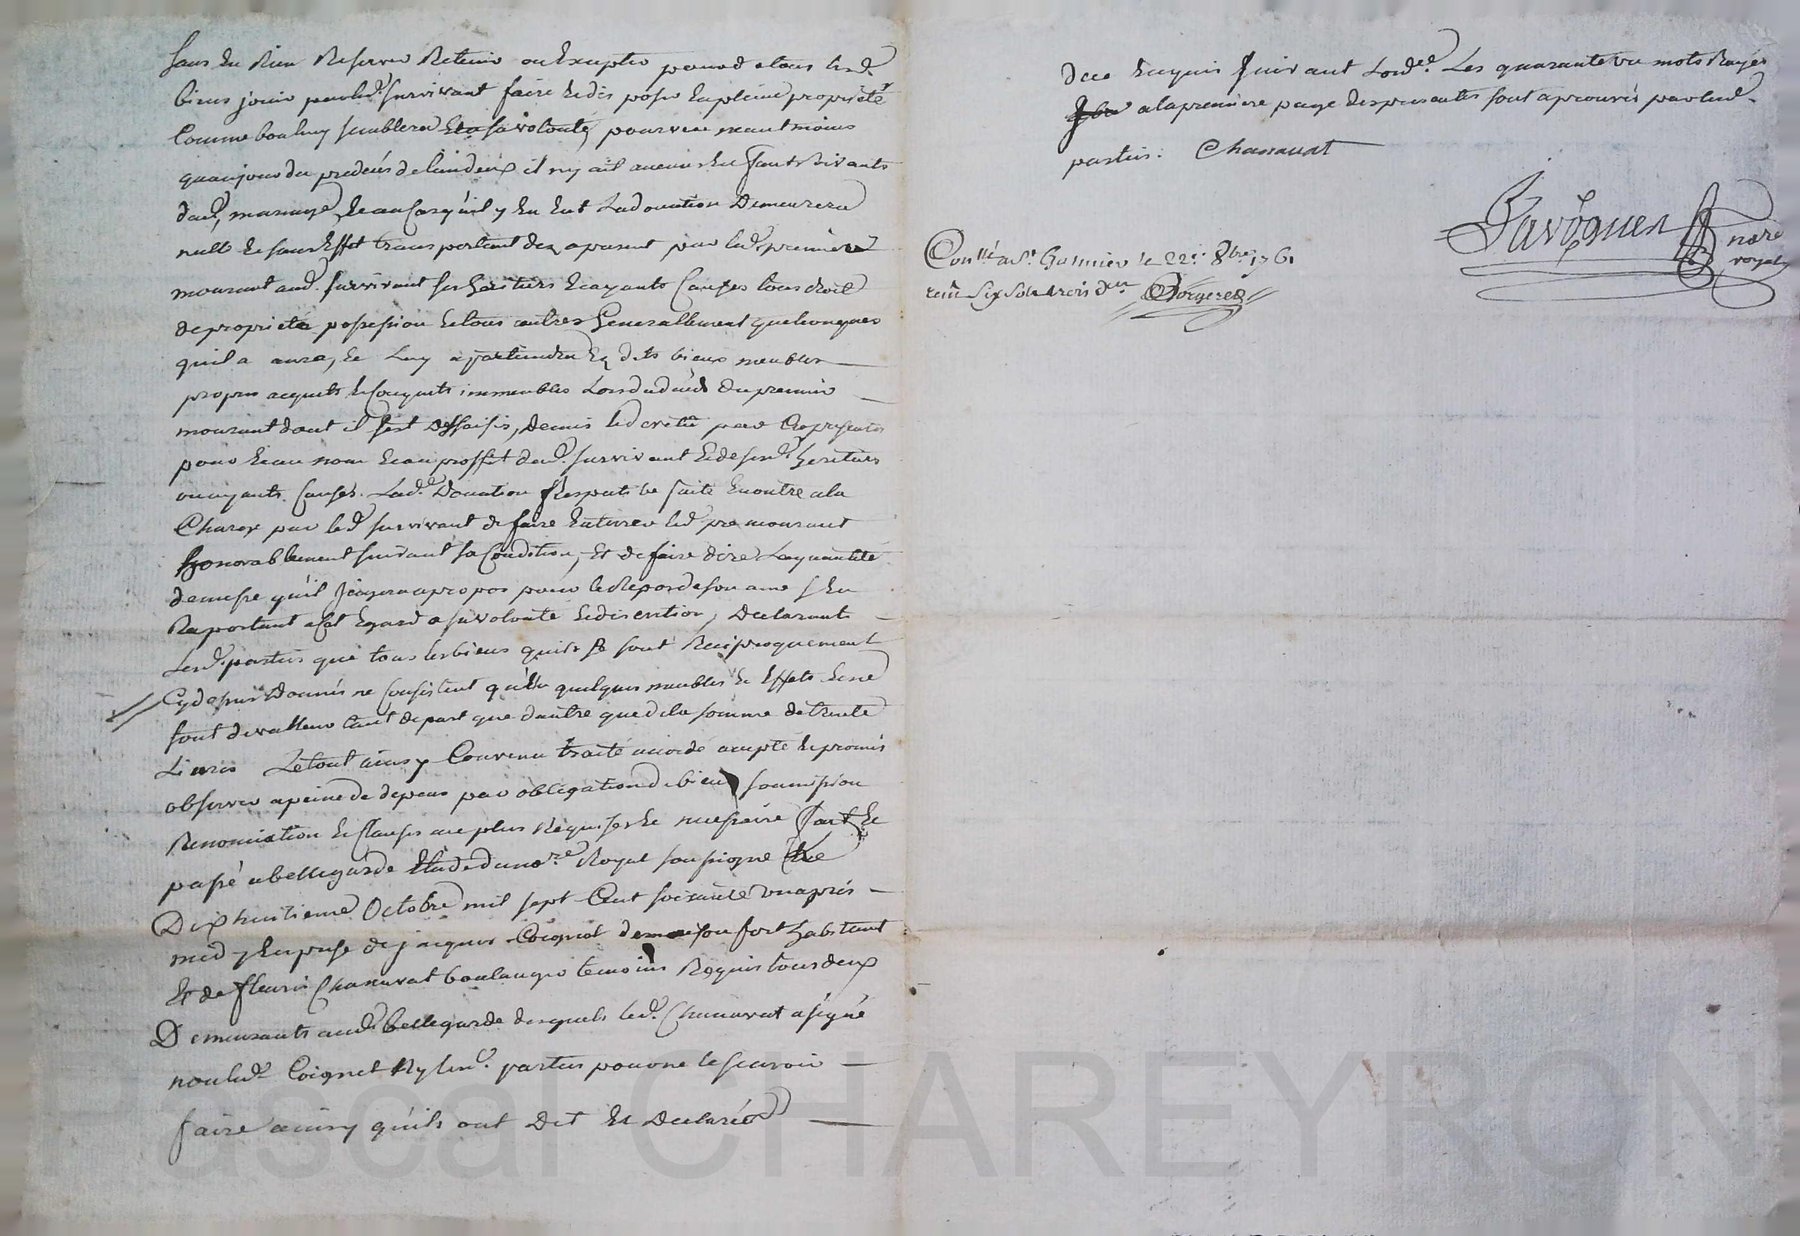 sans En Rien Reserver Retenir ou Excepter pour d tous lesd.
biens jouir parled. survivant faire Et dis poser En pleine propriété
Comme bon luy semblera Et a sa volonté, pourveu neantmoins
qu'au jour du predeces de l'un d'eux il ny ait aucuns Enfants vivants
dud. mariage, Et au Cas qu'il y En Eut Lad donation Demeurera
nulle Et sans Effet transportant dez a present par led. premier
mourant aud. survivant ses heritiers Et ayants Causes tous droit
de proprieté possession Et tous autres Generallement quelconques
qu'il a aura, Et Luy apartiendra Ez dits biens meubles
propres acquets Et Conquets immeubles Lors du décés du premier
mourant dont il s'est dessaisis, Demis Et devetu par Ces presentes
pour Et au nom Et au proffit dud. survivant Et de sesd. heritiers
ou ayants Causes. Lad. Donation Respective faite En outre a la
Charge par led. survivant de faire Enterrer led. pre mourant
honorablement suivant sa Condition, Et de faire dire La quantité
de messe qu'il jugera apropos pour le Repos de son ame s'En
Raportant a Cet Egard a sa volonté Et discretion, Declarants
Lesd. parties que tous les biens qu'ils se sont Reciproquement
Cy dessus Donnés ne Consistent qu'En quelques meubles Et Effets Et ne
sont de valleur tant de part que d'autre que de la somme de trente
Livres Le tout ainsy Convenu traité accordé accepté Et promis
observer a peine de depens par obligation de biens soumission
Renonciation Et Clauses au plus Requises Et necessaire fait Et
passé a bellegarde Etude du no.re Royal soussigné Ce
Dix huitieme Octobre mil sept Cent soixante un aprés
midy En presence de jacques Coignet de maisonfort habitant
Et de fleuris Chanavat boulanger temoins Requis tous deux
Demeurants aud. bellegarde desquels led. Chanavat a signé
non led. Coignet Ny lesd. parties pour ne le scavoir
faire ainsy qu'ils ont Dit Et Declarés
due Enquis suivant Lord.ce Les quarante un mots Rayés
a la premiere page des presentes sont aprouvés par lesd.
parties. Chanavat
Favoguer
nore
royal
Con.llé a St. Galmier le 22e. 8bre 1761
recu six sols trois den. Forgeres
Pascal CHAREYRON